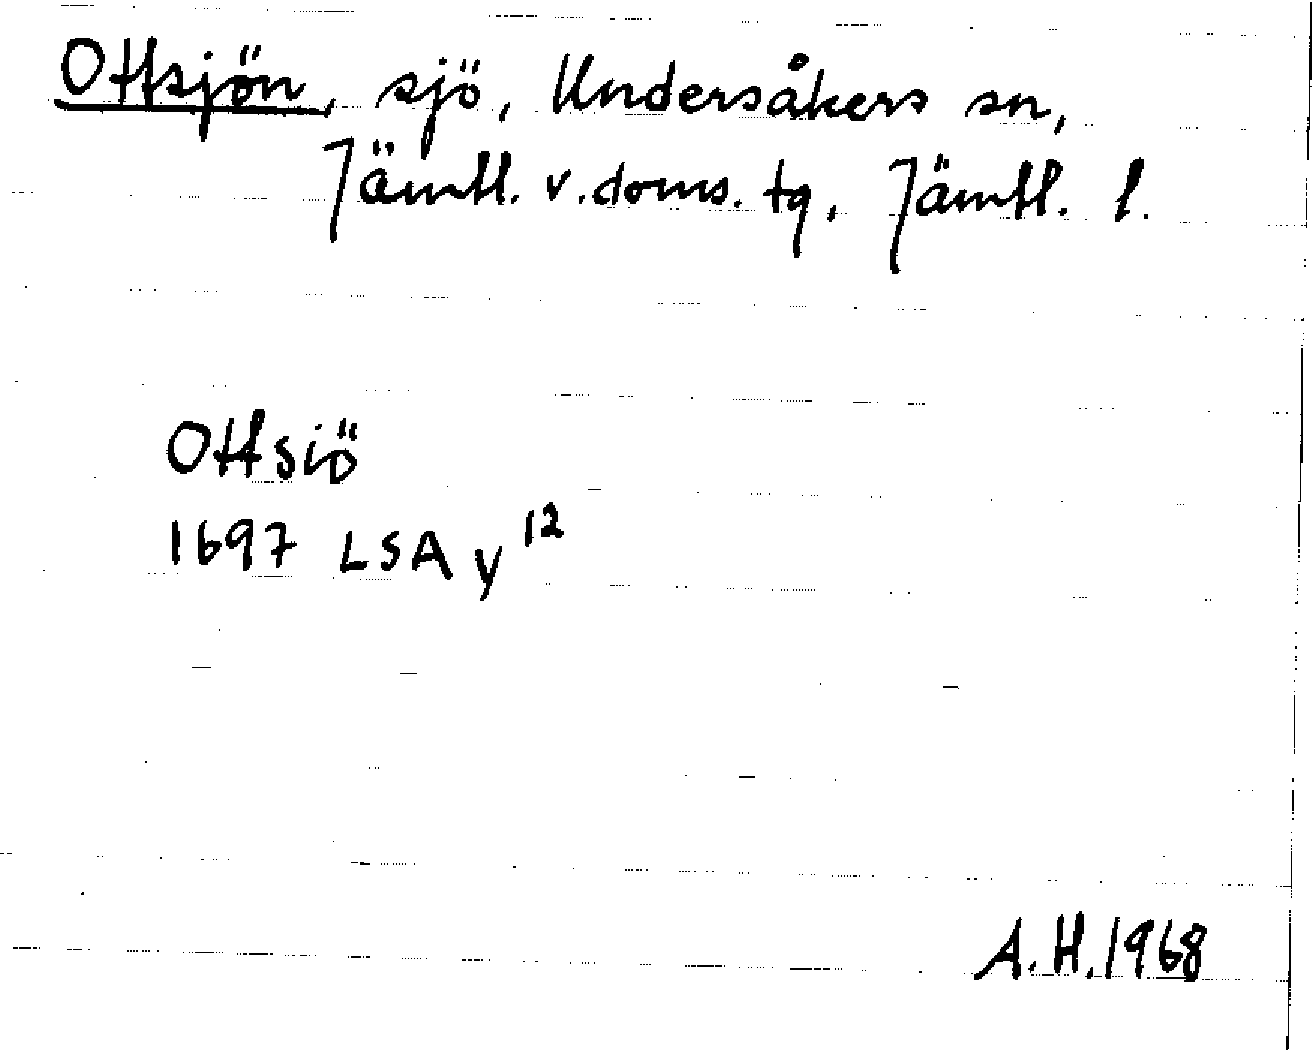 Ottsjön, sjö, Undersåkers sn,
Jämtl. v. doms. tg, Jämtl. l.
Ottsiö
1697 LSA y 12
A.H. 1968